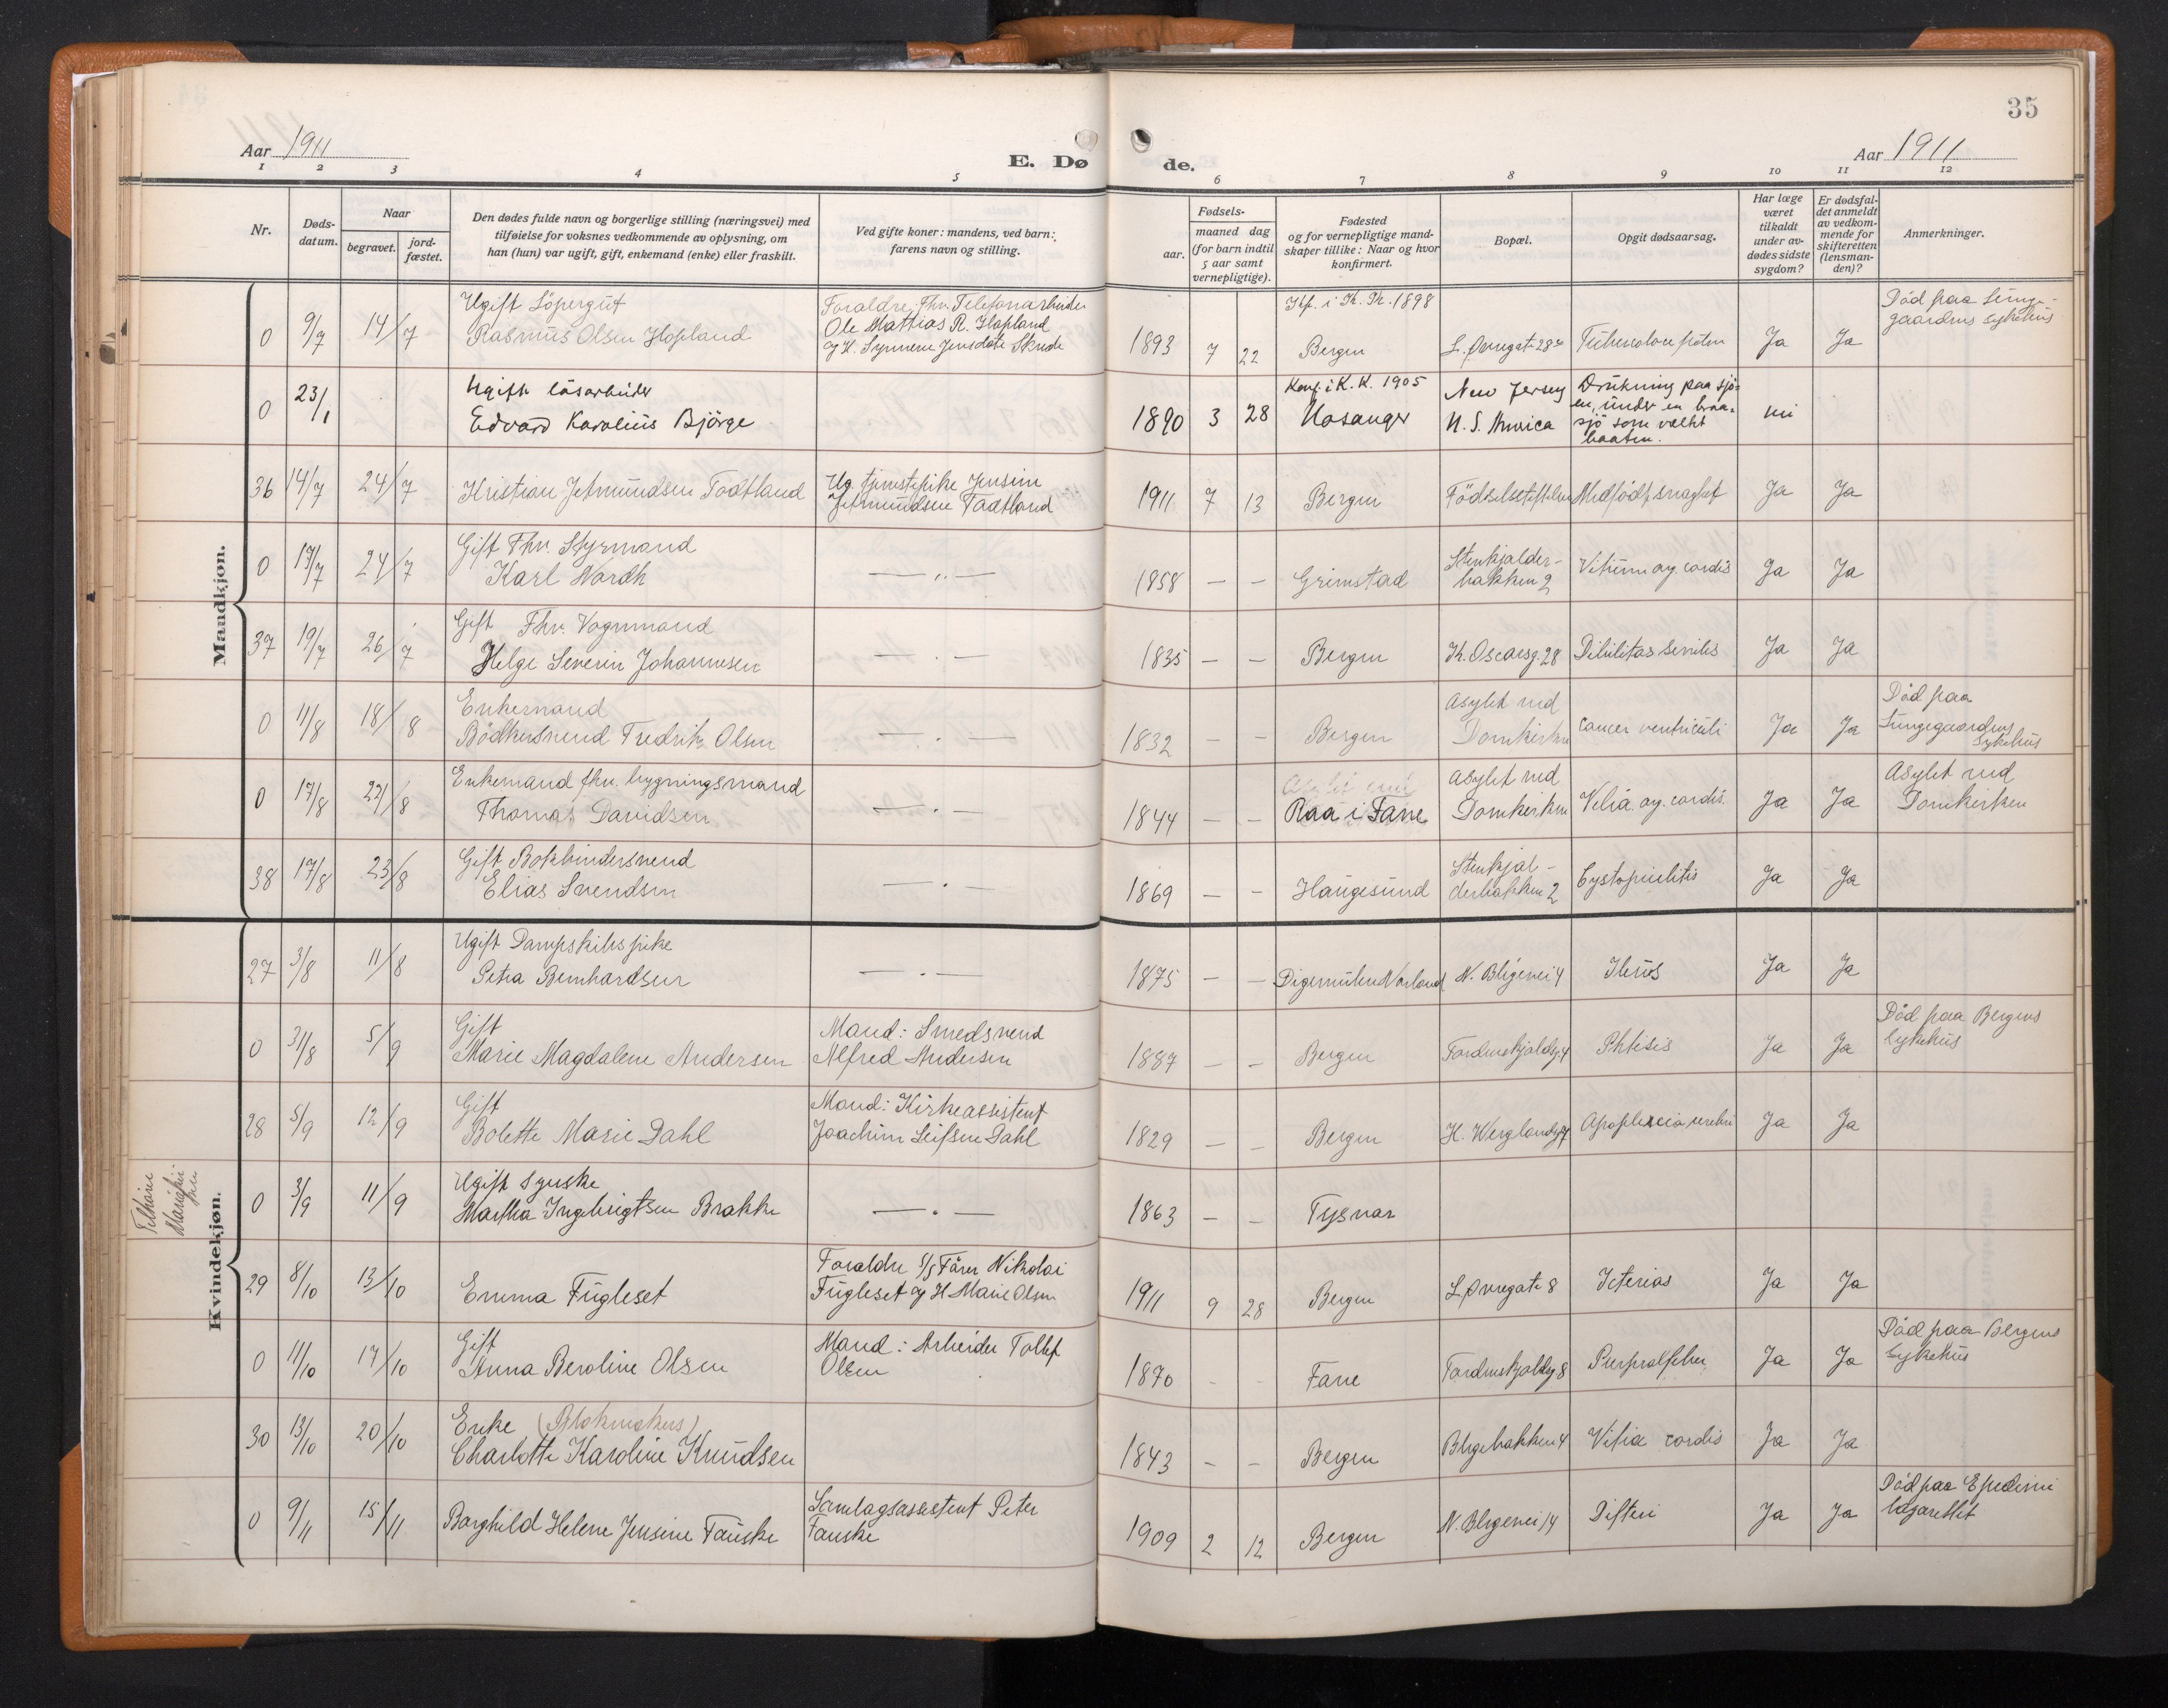 35
Aar 1911
E. Dø
de.
Aar 1911
1 2 3 4 5 6 7 8 9 10 11 12
Nr.
Døds-
datum.
Naar
begravet.
jord-
fæstet.
Den dødes fulde navn og borgerlige stilling (næringsvei) med
tilføielse for voksnes vedkommende av oplysning, om
han (hun) var ugift, gift, enkemand (enke) eller fraskilt.
Ved gifte koner: mandens, ved barn:
farens navn og stilling.
Fødsels-
aar.
maaned dag
(for barn indtil
5 aar samt
vernepligtige).
Fødested
og for vernepligtige mand-
skaper tillike: Naar og hvor
konfirmert.
Bopæl.
Opgit dødsaarsag.
Har læge
været
tilkaldt
under av-
dødes sidste
sygdom?
Er dødsfal-
det anmeldt
av vedkom-
mende for
skifteretten
(lensman-
den)?
Anmerkninger.
Mandkjøn.
0 9/7 14/7 Ugift Löpergut
Rasmus Olsen Hopland
Foraldre: Fhv. Telefonarbeider
Ole Mattias R. Hopland
og H. Synneve Jensdatr Skude
1893 7 22
Kf. i K. K. 1898
Bergen
L. Øvregate 28
Ja Ja
Död paa Lunge-
gaardens sykehus
0 23/1 Ugift løsarbeider
Edvard Karolius Björge
1890 3 28
Konf. i K. K. 1905
Hosanger
New Jersey
N. S. America
Drukning paa sjö-
en, under en braa-
sjö som veltet
baaten.
nei
36 14/7 24/7 Kristian Jetmundsen Todtland
Ug. tjenstepike Jensine
Jetmundsen Taatland
1911 7 13 Bergen Födselsstiftelsen Medfödt svaghet Ja Ja
0 17/7 24/7 Gift Fhv. Styrmand
Karl Nordh
— „ —
1858 — — Grimstad
Stenkjelder-
bakken 2
Vitium org. cordis Ja Ja
37 19/7 26/7 Gift Fhv. Vognmand
Helge Severin Johannesen
— . —
1835 — — Bergen K. Oscarsg. 28 Debilitas senilis Ja Ja
0 11/8 18/8 Enkemand
Bödkersvend Fredrik Olsen
— . —
1832 — — Bergen
Asylet ved
Domkirken
Cancer ventriculi Ja Ja
Död paa
Lungegaardens
Sykehus
0 17/8 22/8 Enkemand fhv. bygningsmand
Thomas Davidsen
— . —
1844 — — Raa i Fane
Asylet ved
Domkirken
Vitia org. cordis. Ja Ja
Asylet ved
Domkirken
38 17/8 23/8 Gift Bokbindersvend
Elias Svendsen
— . —
1869 — — Haugesund
Stenkjel-
derbakken 2
Cystopielitis Ja Ja
Kvindekjøn.
27 3/8 11/8 Ugift Dampskibspike
Petra Bernhardsen
— . —
1875 — — Digermulen Norland N. Blegevei 4 Ileus Ja Ja
0 31/8 5/9 Gift
Marie Magdalene Andersen
Mand: Smedsvend
Alfred Andersen
1887 — — Bergen Tordenskjoldsg. 4 Phtisis Ja Ja
Död paa Bergens
Sykehus
28 5/9 12/9 Gift
Bolette Marie Dahl
Mand: Kirkeassistent
Joachim Leifsen Dahl
1829 — — Bergen Apoplexia cerebri Ja Ja
Tilhörer
Mariakir
ken
0 3/9 11/9 Ugift Syerske
Martha Ingebrigtsen Brakke
— . —
1863 — — Tysvær
29 8/10 13/10 Emma Fugleset
Foraldre Nikolai
Fugleset og H Marie Olsen
1911 9 28 Bergen L. Øvregate 8 Icterus Ja Ja
0 11/10 17/10 Gift
Anna Beroline Olsen
Mand: Arbeider Tollef
Olsen
1870 - - Fane Tordenskjoldsg 8 Ja Ja
Död paa Bergens
Sykehus
30 13/10 20/10 Enke (Blokmakers)
Charlotte Karoline Knudsen
1843 — — Bergen Blegebakken 4 Vitia cordis Ja Ja
0 9/11 15/11 Borghild Helene Jensine Fauske
Samlagsassistent Peter
Fauske
1909 2 12 Bergen N. Blegevei 14 Difteri Ja Ja
Död paa Epedimi
lagarettet